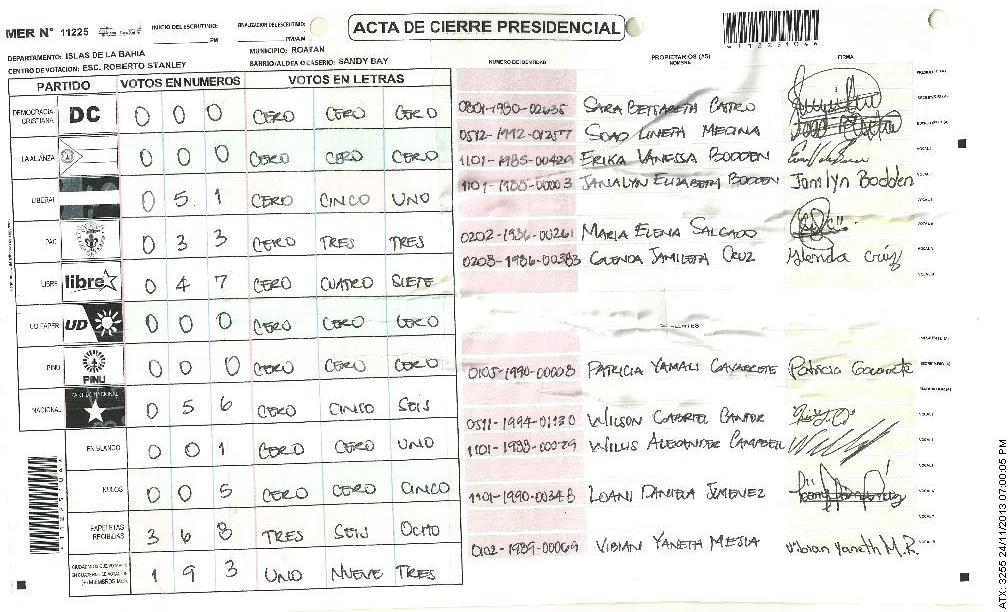 MER N° 11225
INICIO DEL ESCRUTINIO:
PM
FINALIZACION DEL ESCRUTINIO:
PM/AM
ACTA DE CIERRE PRESIDENCIAL
DEPARTAMENTO: ISLAS DE LA BAHIA
MUNICIPIO: ROATAN
CENTRO DE VOTACION: ESC. ROBERTO STANLEY
BARRIO/ALDEA O CASERIO: SANDY BAY
NUMERO DE IDENTIDAD
PROPIETARIOS (AS)
NOMBRE
FIRMA
PARTIDO VOTOS EN NUMEROS VOTOS EN LETRAS
DEMOCRACIA CRISTIANA DC 0 0 0 CERO CERO CERO
LA ALIANZA 0 0 0 CERO CERO CERO
LIBERAL 0 5 1 CERO CINCO UNO
PAC 0 3 3 CERO TRES TRES
LIBRE libre 0 4 7 CERO CUATRO SIETE
UD FAPER UD 0 0 0 CERO CERO CERO
PINU PINU 0 0 0 CERO CERO CERO
NACIONAL 0 5 6 CERO CINCO SEIS
EN BLANCO 0 0 1 CERO CERO UNO
NULOS 0 0 5 CERO CERO CINCO
PAPELETAS RECIBIDAS 3 6 8 TRES SEIS OCHO
1 9 3 UNO NUEVE TRES
0801-1980-02635 SARA BETSABETH CASTRO
0512-1992-01257 SOAD LINETH MEDINA
1101-1985-00429 ERIKA VANESSA BODDEN
1101-1988-00003 JANALYN ELIZABETH BODDEN Janilyn Bodden
0202-1986-00261 MARIA ELENA SALGADO
0208-1986-00383 GLENDA JAMILETH CRUZ Glenda Cruz
0105-1990-00008 PATRICIA YAMALI GAVARRETE Patricia Gavarrete
0511-1994-01130 WILSON GABRIEL CANTOR
1101-1988-00079 WILLIS ALEXANDER CAMPBELL
1101-1990-00348 LOANI DANIELA JIMENEZ
0102-1989-00069 VIBIAN YANETH MEJIA Vibian Yaneth M.R.
ATX: 3255 24/11/2013 07:00:05 PM